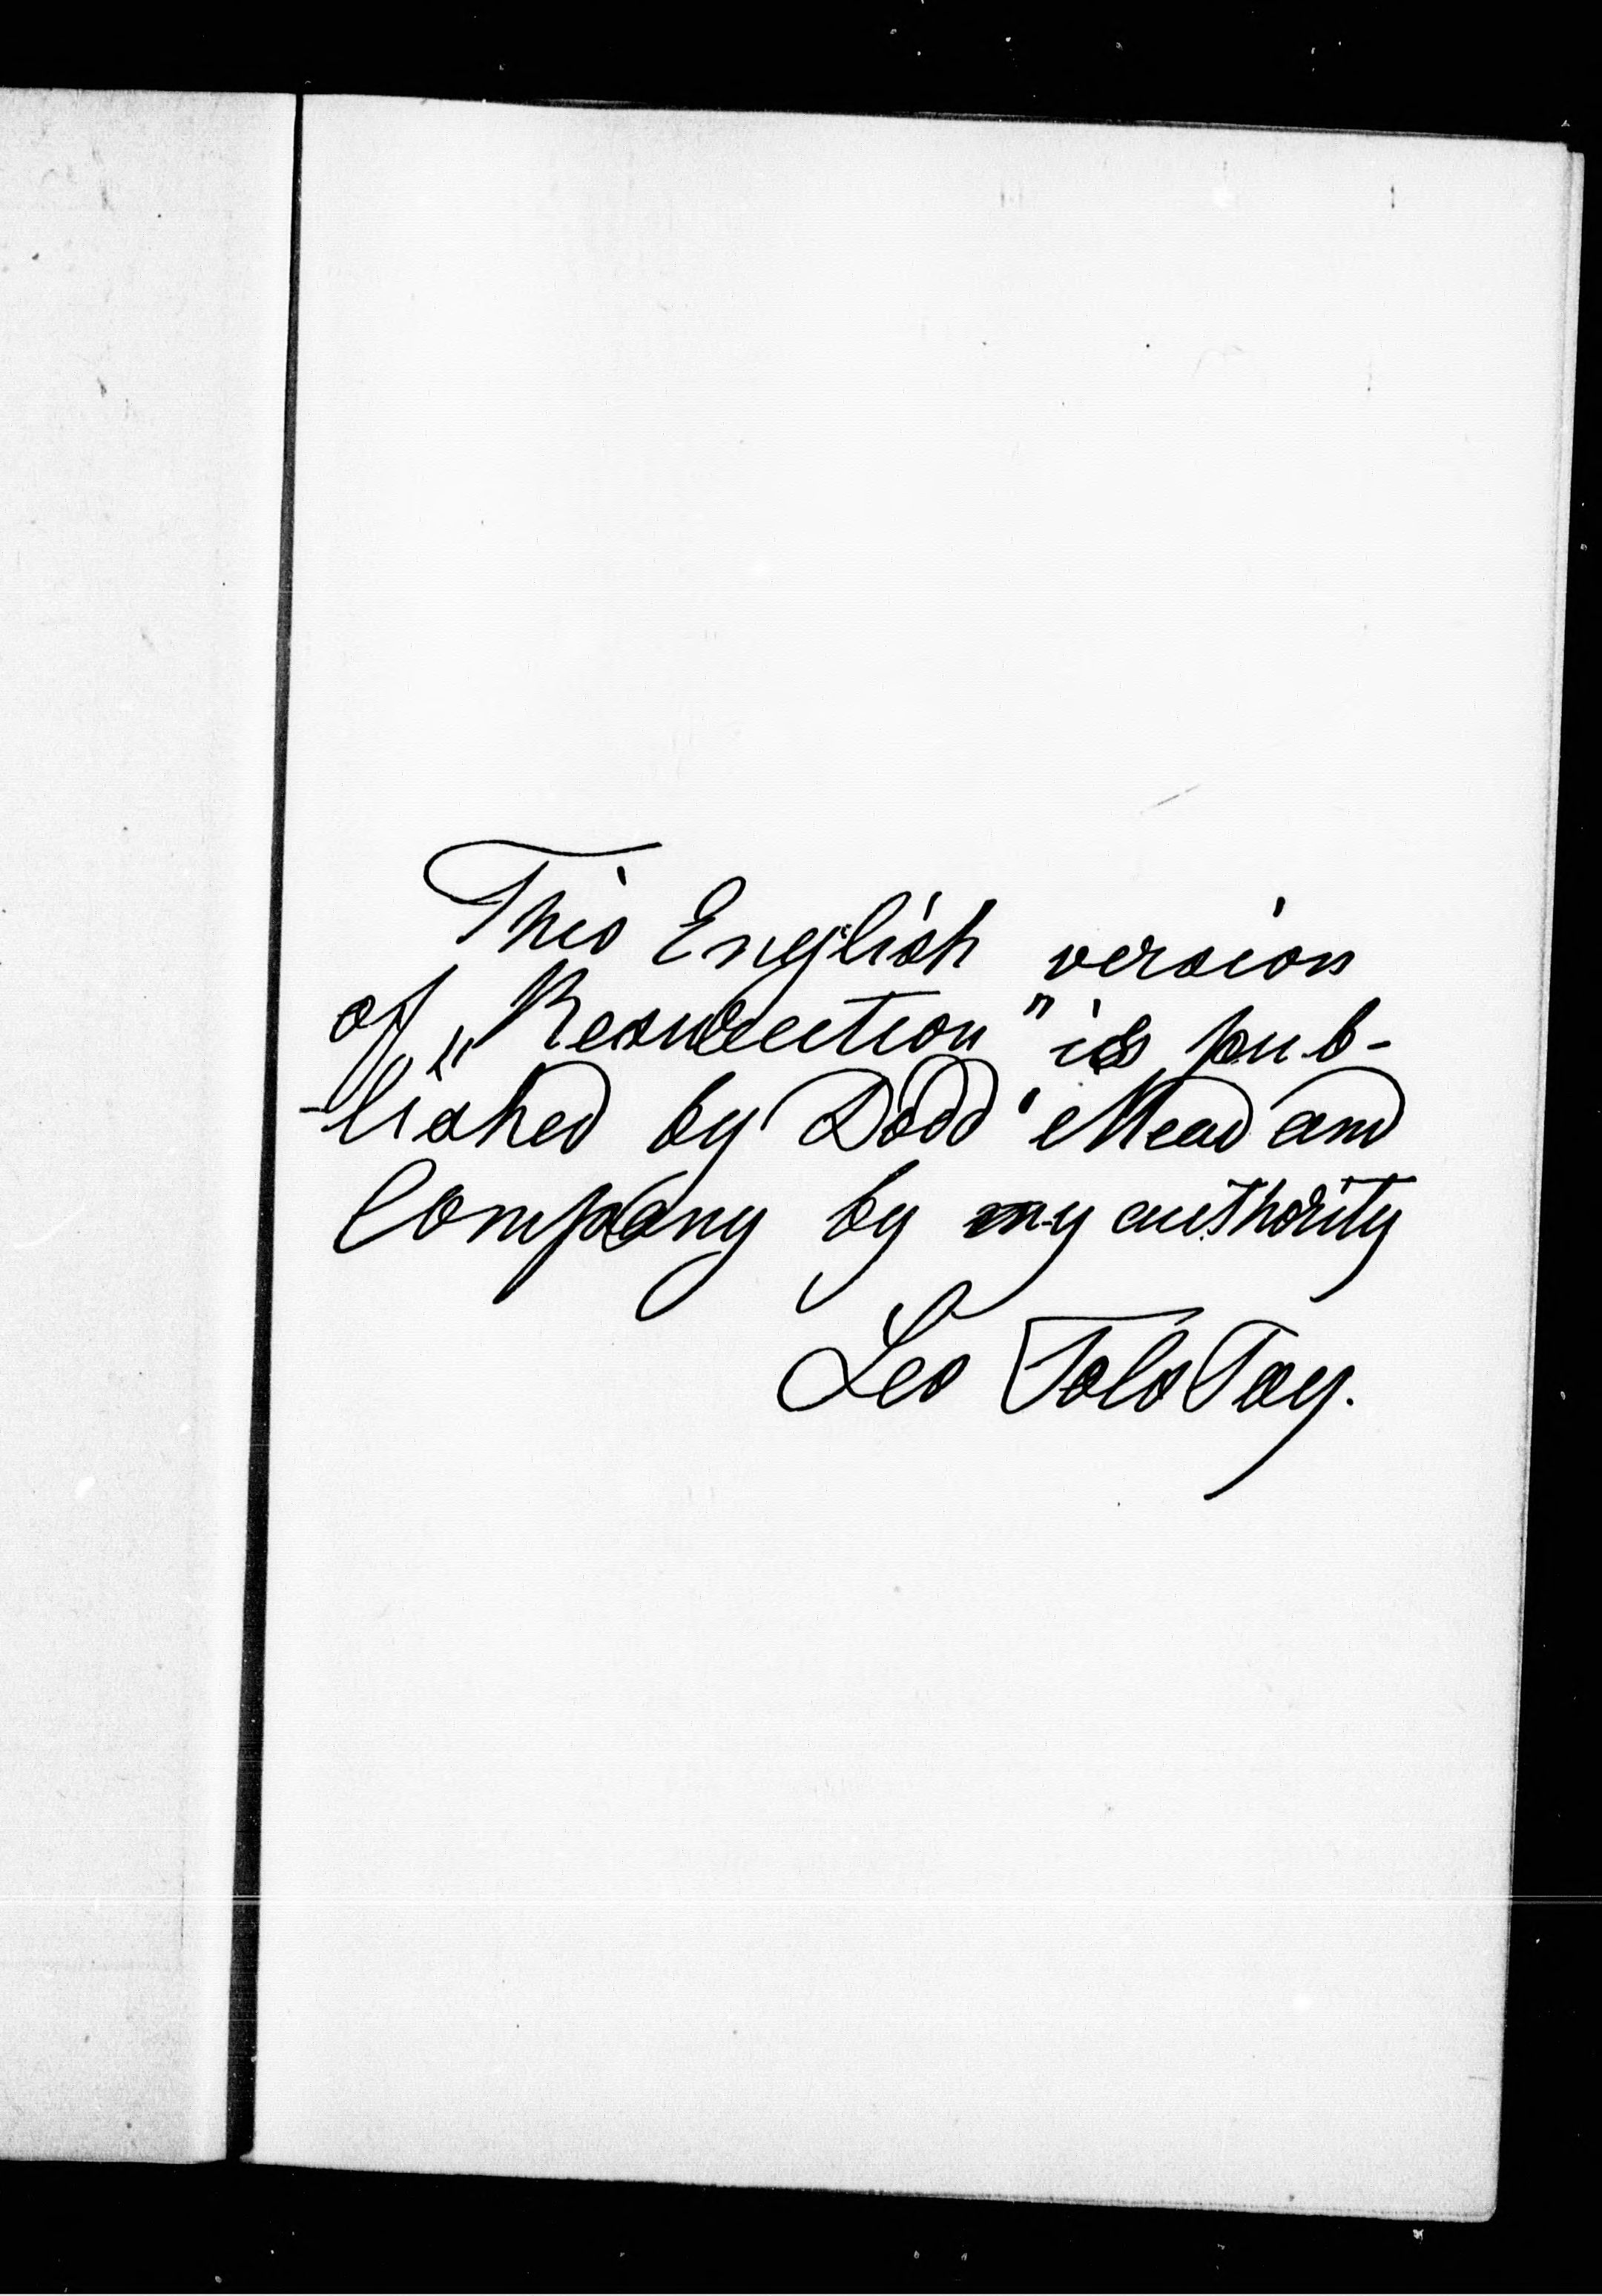 This English version
of „Resurrection" is pub-
-lished by Dodd' Mead and
Company by my authority
Leo Tolstoy.